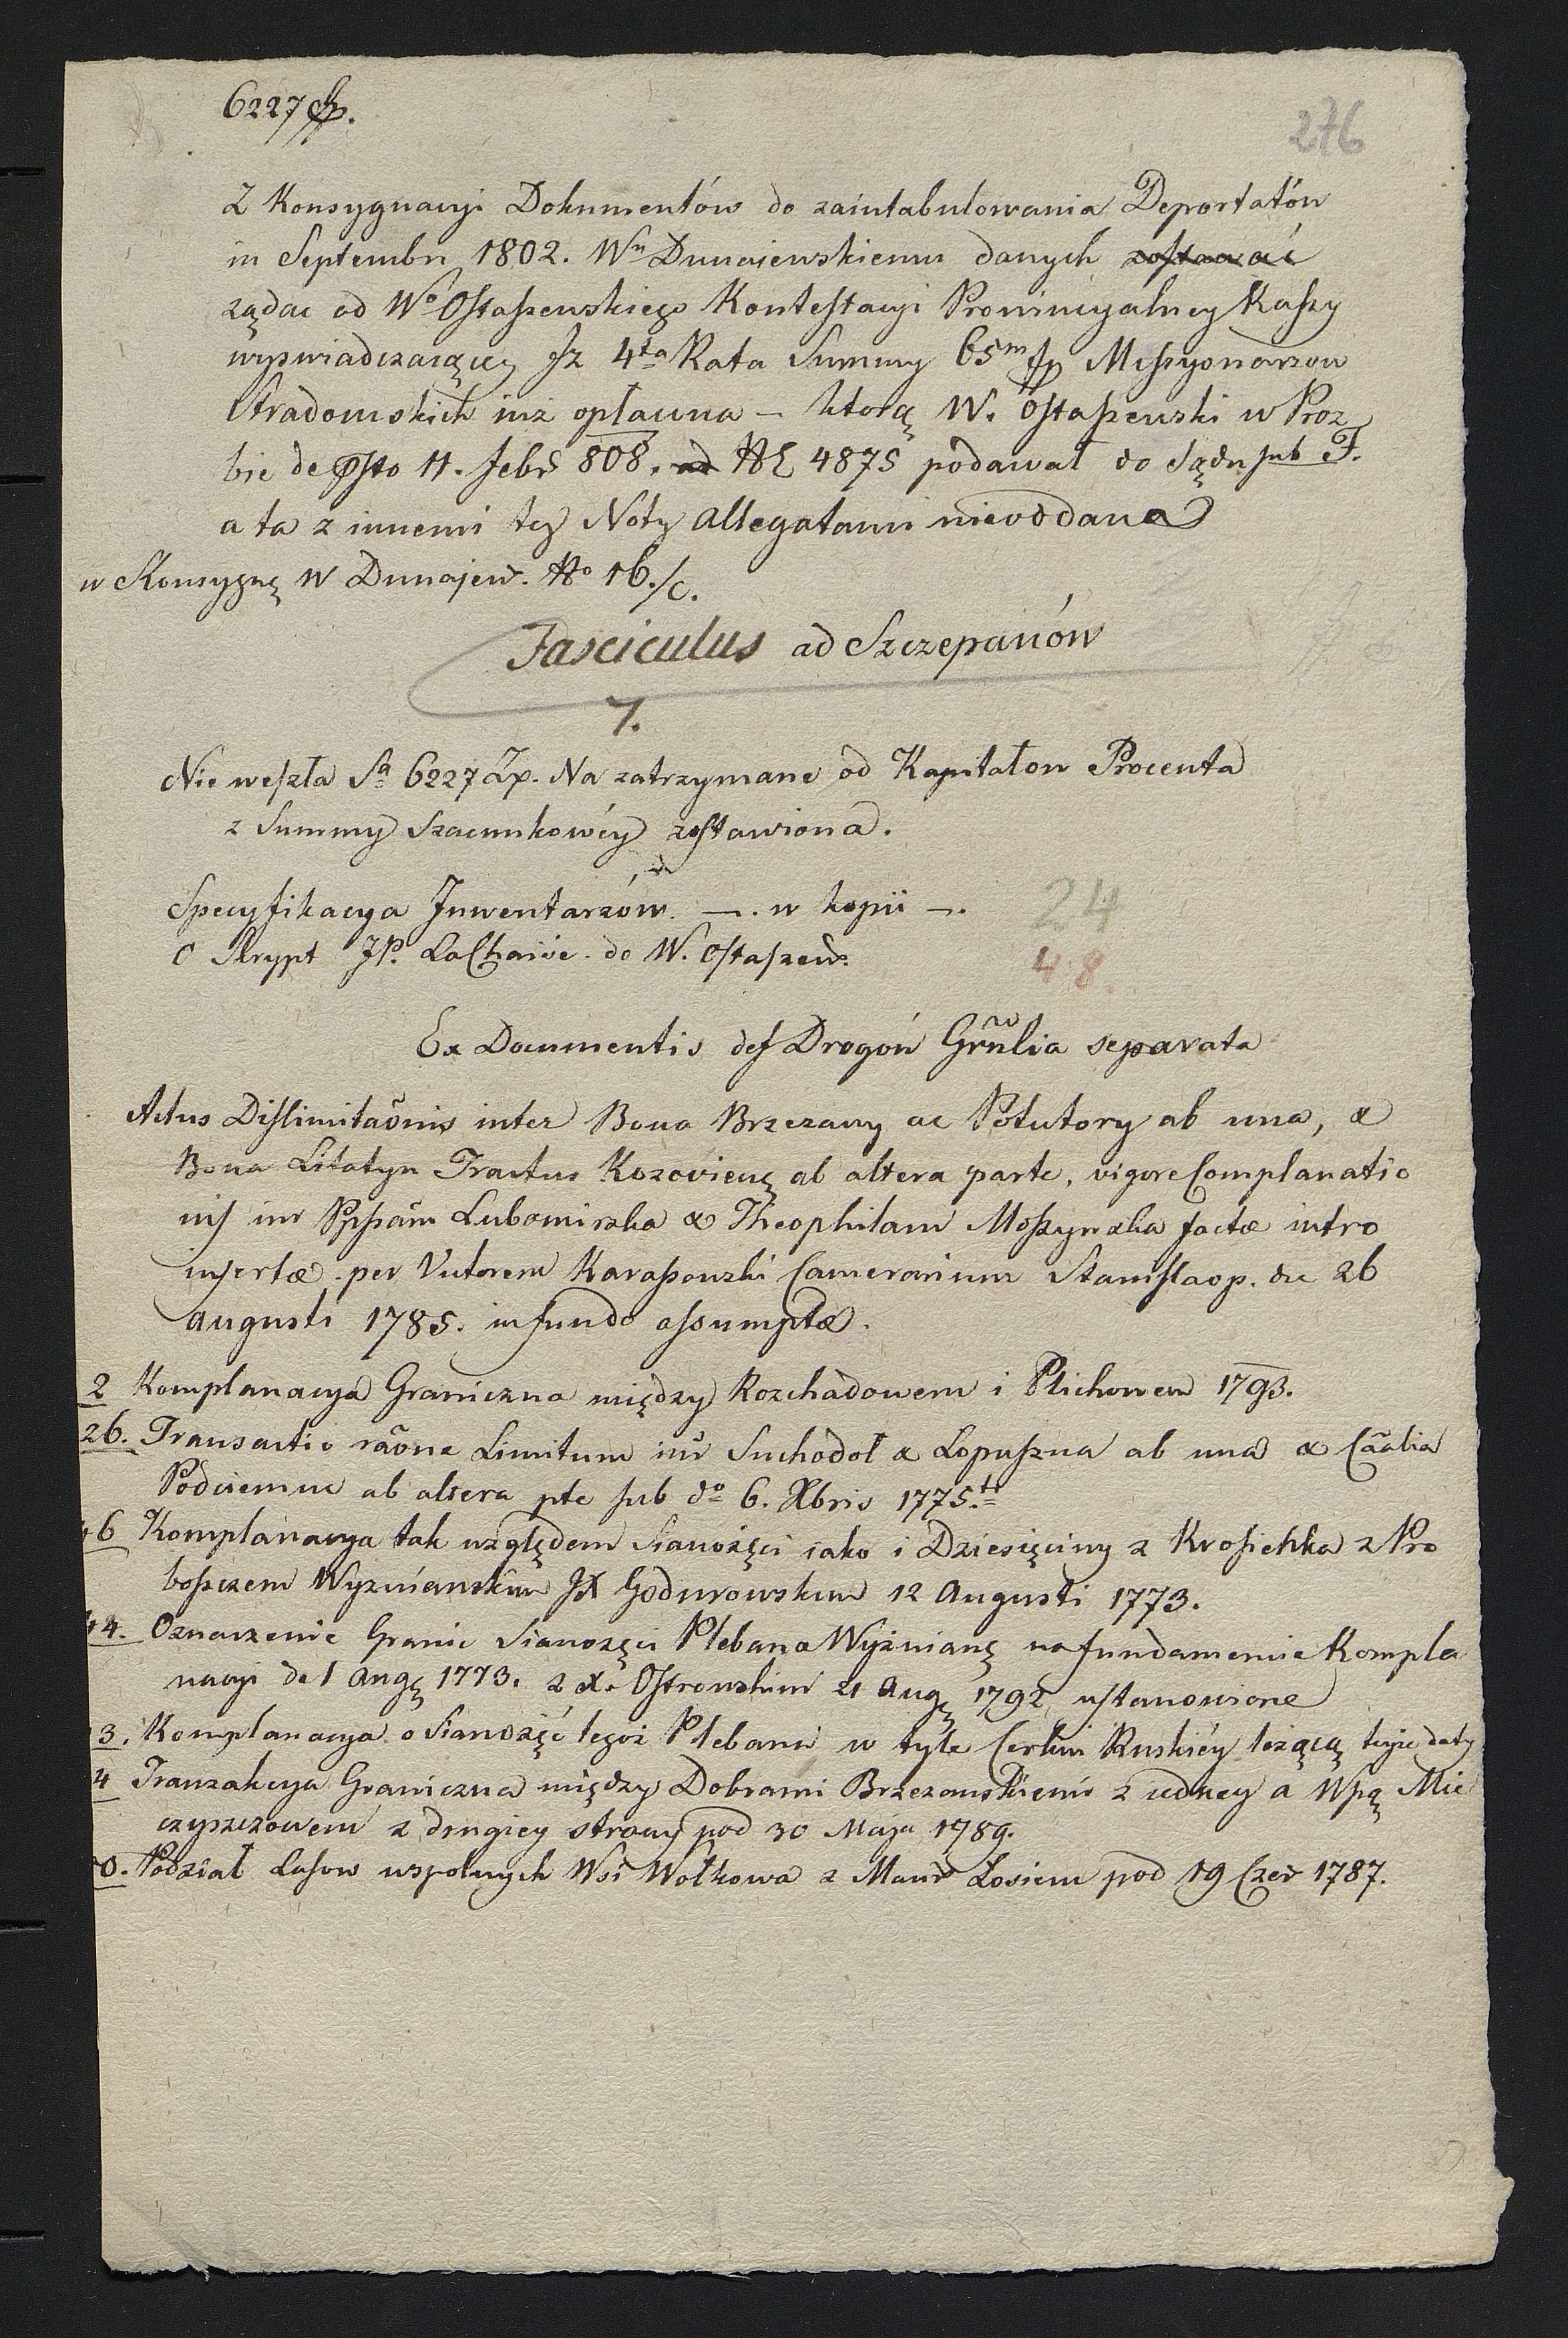 6227
276
Z Konsygnacyi Dokumentów do zaintabulowania Deportatów
in Septembri 1802. Wu Dunaiewskiemu danych zostawać
ządac od Wo Ostaszewskiego Kontestacyi Prowincyalney Kassy
wyswiadczaiącey Jz 4ta Rata Summy 65m Missyonarzow
Stradomskich iuż opłacona – ktorą W. Ostaszewski w Proz
bie de 11. Febr 808. ad 4875 podawał do Sądu sub F.
a ta z innemi tey Noty allegatami nieoddana
w Konsygnę W Dunajew. No 16./c.
Fasciculus ad Szczepanów
7.
Nie weszła Sa 6227 Zp. Na zatrzymane od Kapitałow Procenta
z Summy Szacunkowéy zostawiona.
Specyfikacya Jnwentarzów. —. w kopii —.
24
O Skrypt JP. LaChaise do W. Ostaszew.
48.
Ex Documentis def Dragon Grnlia separata
Actus Dislimitaonis inter Bona Brzezany ac Potutory ab una, &
Bona Litatyn Tractus Kozovieng ab altera parte, vigore Complanatio
nis inr Lubomirska & Theophilam Moszynska factæ intro
insertæ per Victorem Karaszewski Camerarium Stanislaop. die 26
Augusti 1785. in fundo assumptæ.
2 Komplanacya Graniczna między Rozchadowem i Plichowem 1793.
26. Transactio raone Limitum inr Suchodoł & Lopuszna ab una & Caalia
Podciemne ab altera pte sub do 6. Xbris 1775.
46 Komplanacya tak względem Sianożęci iako i Dziesięciny z Krosienka z Pro
boszczem Wyznianskim JX Godurowskim 12 Augusti 1773.
44. Oznaczenie Granic Sianozęci Plebana Wyżnianę na fundamencie Kompla
nacyi de 1 Augę 1773. z X. Ostrowskim 21 Augę 1792 ustanowione
3. Komplanacya o Sianożęć tegoż Plebana w tyle Cerkwi Ruskiéy leżącą teyże daty
4 Tranzakcya Graniczna między Dobrami Brzezanskiemi z iedney a Wsią Mie
czyszczowem z drugiey strony pod 30 Maja 1789.
0. Podział Lasow wspolnych Wsi Wołkowa z Maur Łosiem pod 19 Czer 1787.